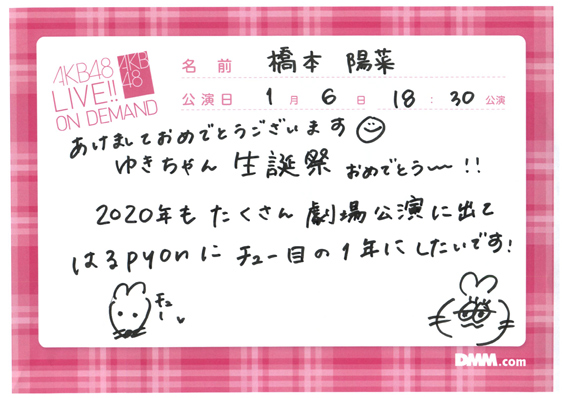 AKB48
LIVE!!
ON DEMAND
AKB
48
名前 橋本 陽菜
公演日 1月6日 18:30公演
あけましておめでとうございます
ゆきちゃん 生誕祭 おめでとう〜!!
2020年も たくさん 劇場公演に出て
はるpyonに チュー目の1年にしたいです!
チュー
DMM.com